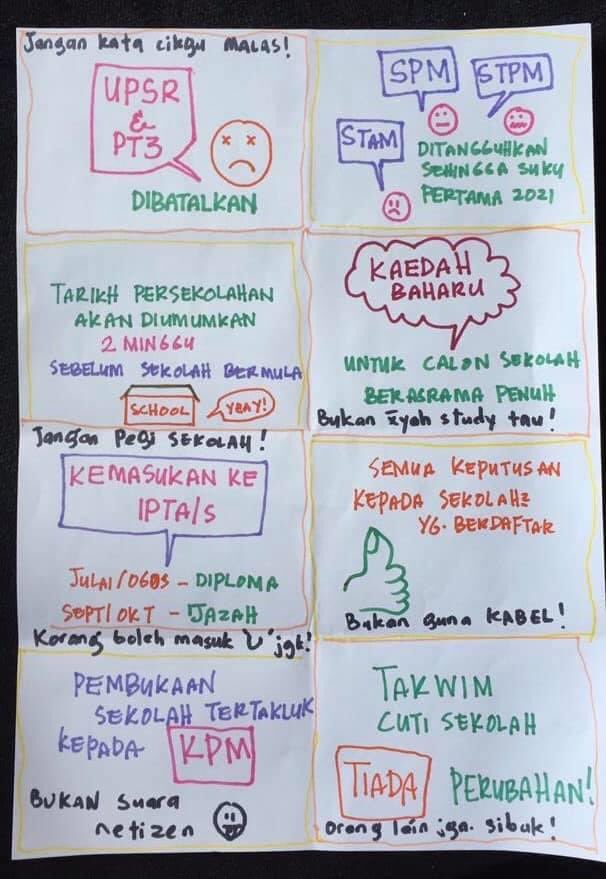 Jangan kata cikgu MALAS!
UPSR
&
PT3
DIBATALKAN
SPM
STPM
STAM
DITANGGUHKAN
SEHINGGA SUKU
PERTAMA 2021
TARIKH PERSEKOLAHAN
AKAN DIUMUMKAN
2 MINGGU
SEBELUM SEKOLAH BERMULA
SCHOOL
YEAY!
Jangan pegi SEKOLAH!
KAEDAH
BAHARU
UNTUK CALON SEKOLAH
BERASRAMA PENUH
Bukan xyah study tau!
KEMASUKAN KE
IPTA/S
JULAI/OGOS - DIPLOMA
SEPT/OKT - IJAZAH
Korang boleh masuk U jgk!
SEMUA KEPUTUSAN
KEPADA SEKOLAH2
YG. BERDAFTAR
Bukan guna KABEL!
PEMBUKAAN
SEKOLAH TERTAKLUK
KEPADA KPM
BUKAN suara
netizen
TAKWIM
CUTI SEKOLAH
TIADA PERUBAHAN!
Orang lain jga. sibuk!